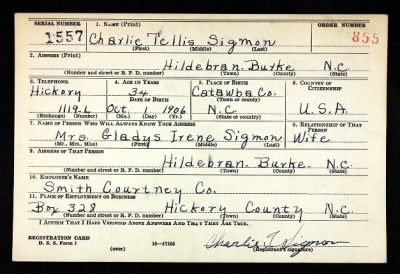 SERIAL NUMBER 1. NAME (Print) ORDER NUMBER
1557 Charlie Tellis Sigmon 855
(First) (Middle) (Last)
2. ADDRESS (Print)
Hildebran. Burke N.C.
(Number and street or R. F. D. number) (Town) (County) (State)
3. TELEPHONE 4. AGE IN YEARS 5. PLACE OF BIRTH 6. COUNTRY OF CITIZENSHIP
Hickory 34 Catawba Co.
DATE OF BIRTH (Town or county)
1119-L Oct. 1 1906 N.C. U.S.A.
(Exchange) (Number) (Mo.) (Day) (Yr.) (State or country)
7. NAME OF PERSON WHO WILL ALWAYS KNOW YOUR ADDRESS 8. RELATIONSHIP OF THAT PERSON
Mrs. Gladys Irene Sigmon Wife
(Mr., Mrs., Miss) (First) (Middle) (Last)
9. ADDRESS OF THAT PERSON
Hildebran. Burke. N.C.
(Number and street or R. F. D. number) (Town) (County) (State)
10. EMPLOYER'S NAME
Smith Courtney Co.
11. PLACE OF EMPLOYMENT OR BUSINESS
Box 328 Hickory County N.C.
(Number and street or R. F. D. number) (Town) (County) (State)
I AFFIRM THAT I HAVE VERIFIED ABOVE ANSWERS AND THAT THEY ARE TRUE.
REGISTRATION CARD
D. S. S. Form 1 (over) 16-17105 Charlie T. Sigmon
(Registrant's signature)